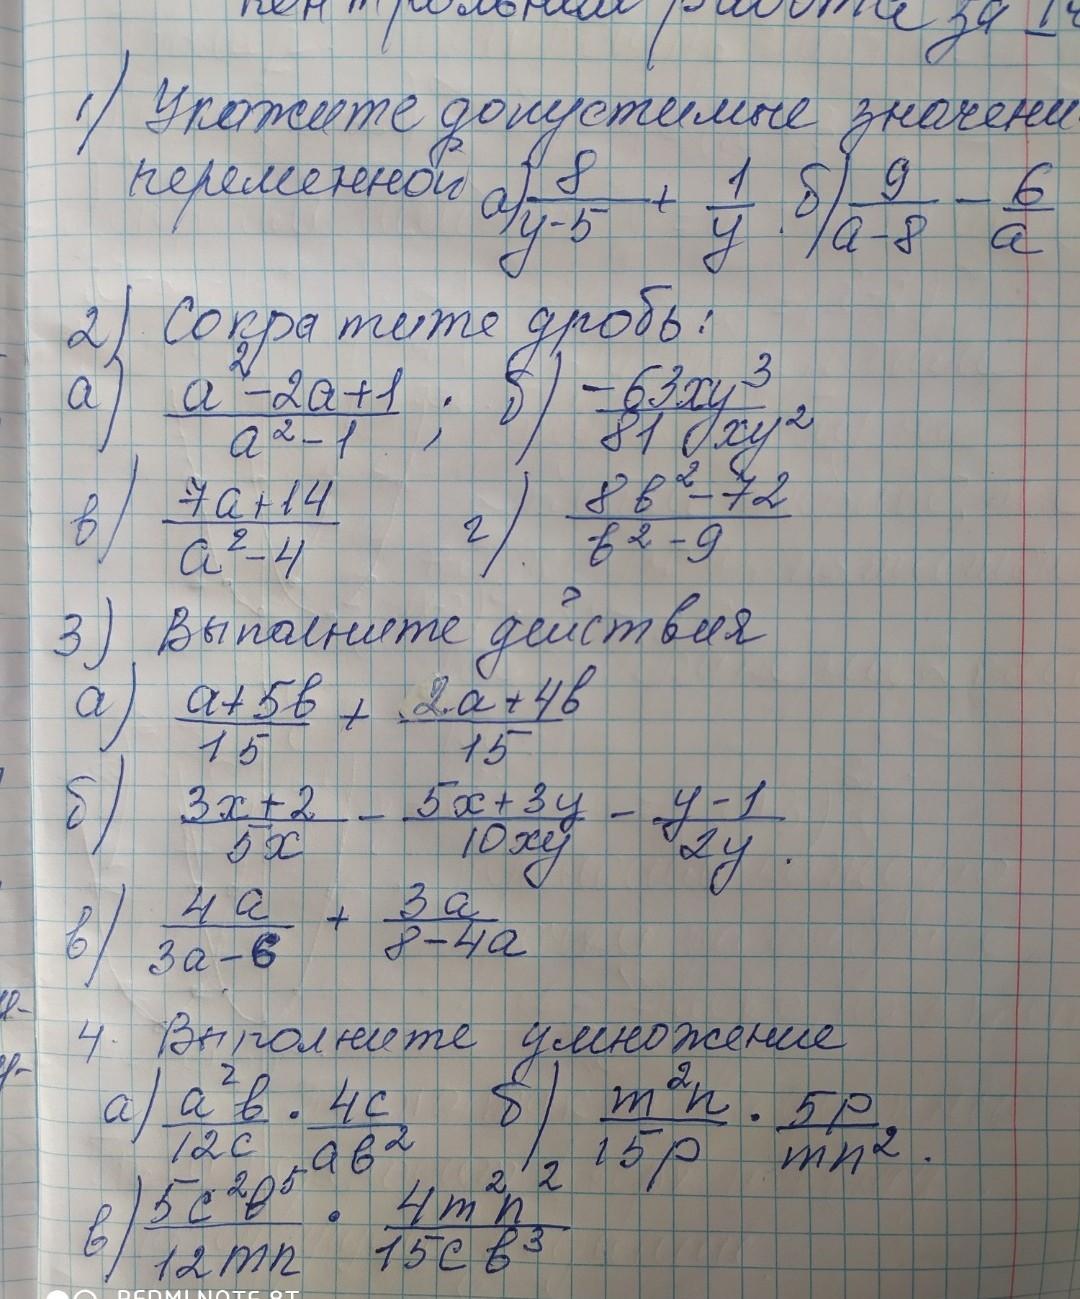 контрольной работе за 1ч
1) Укажите допустимые значени
переменной а) 8/(y-5) + 1/y . б) 9/(a-8) - 6/a
2) Сократите дробь:
а) (a²-2a+1)/(a²-1) ; б) -63xy³/81xy²
в) (7a+14)/(a²-4) г) (8b²-72)/(b²-9)
3) Выполните действия
а) (a+5b)/15 + (2a+4b)/15
б) (3x+2)/5x - (5x+3y)/10xy - (y-1)/2y .
в) 4a/(3a-6) + 3a/(8-4a)
4. Выполните умножение
а) a²b/12c · 4c/ab² б) m²n/15p · 5p/mn² .
в) 5c²b⁵/12mn · 4m²n²/15cb³
REDMI NOTE 8T